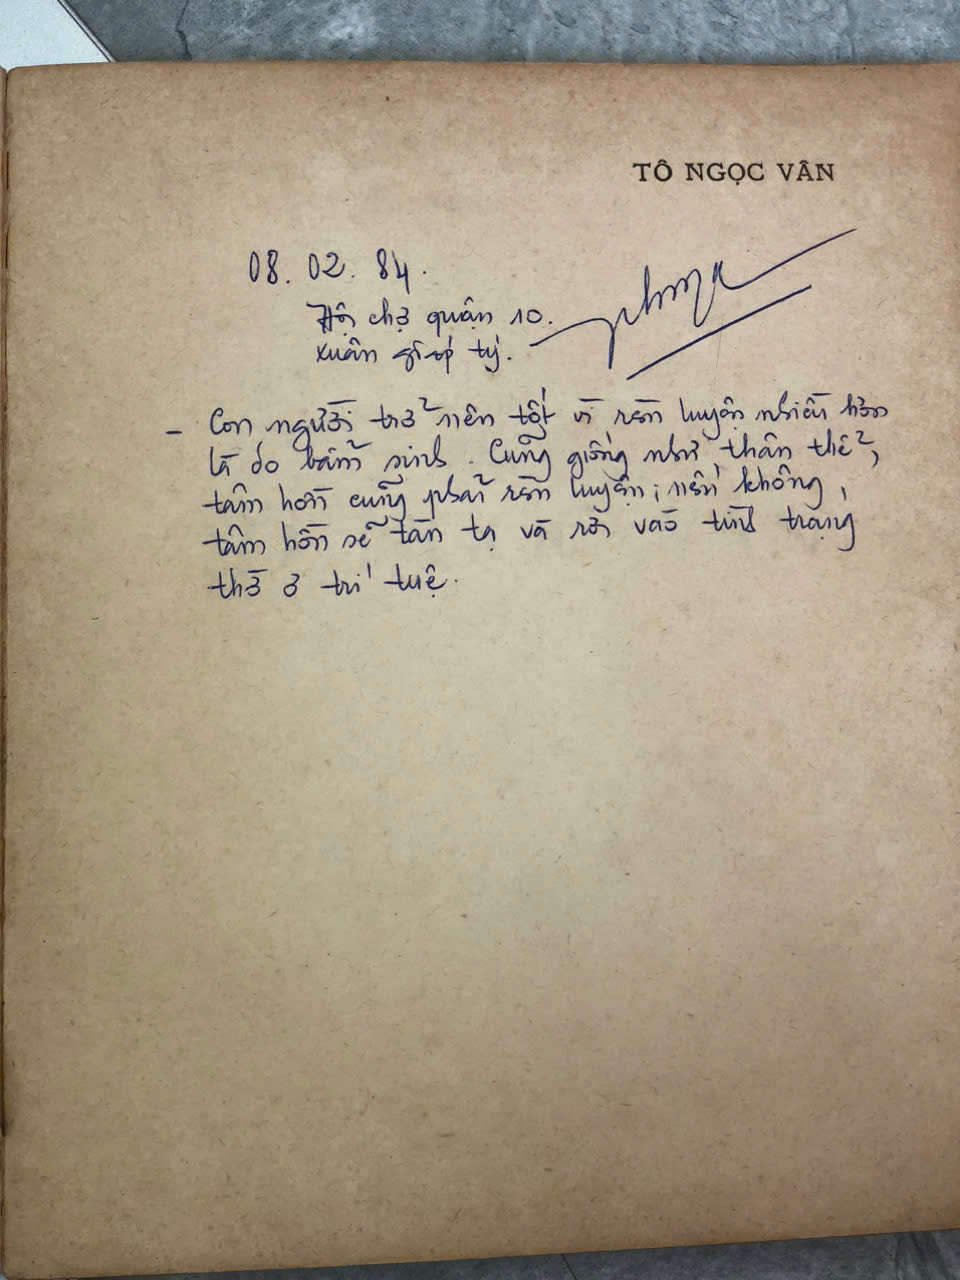 TÔ NGỌC VÂN
08.02.84.
Hội chợ quận 10.
Xuân giáp tý.
- Con người trở nên tốt vì rèn luyện nhiều hơn
là do bẩm sinh. Cũng giống như thân thể,
tâm hồn cũng phải rèn luyện; nếu không,
tâm hồn sẽ tàn tạ và rơi vào tình trạng
thờ ơ trí tuệ.